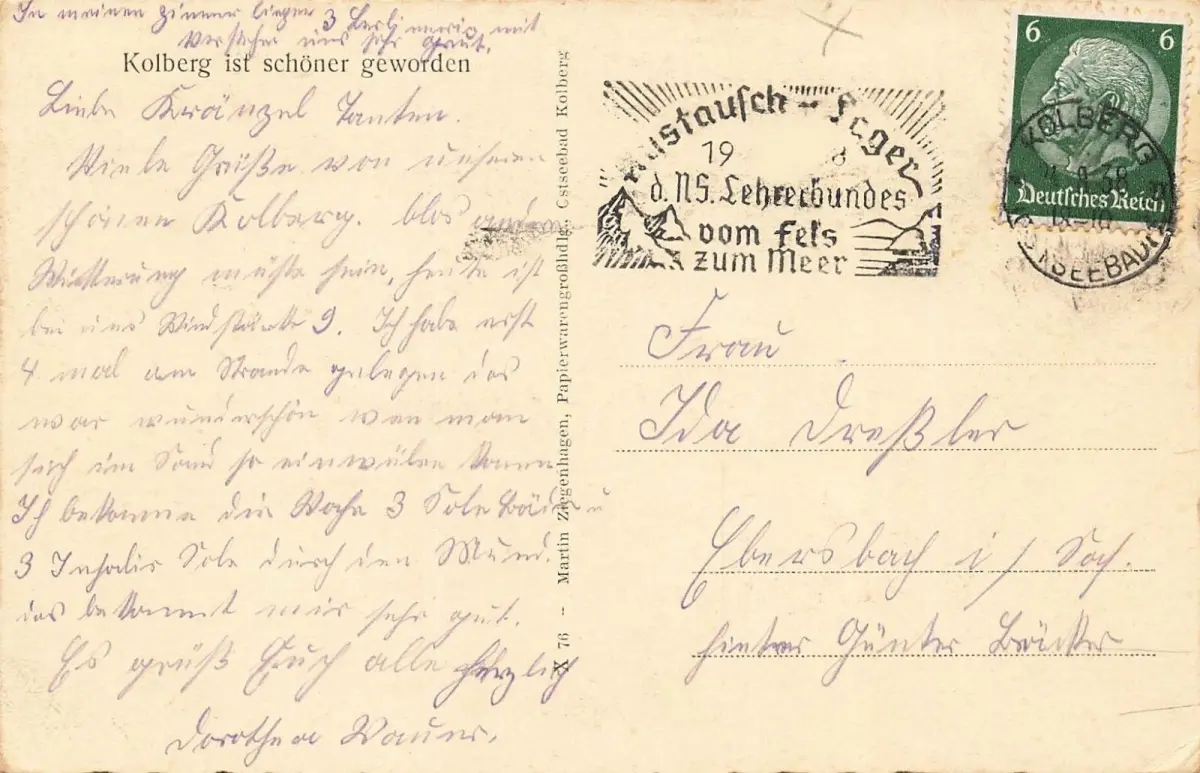 In meinen Zimmer liegen 3 Berlinerin mit
Verstehe uns sehr gut.
Kolberg ist schöner geworden
Liebe Kränzel Tanten.
Viele Grüße von unseren
schönen Kolberg. blos
Witterung müste sein, heute ist
bei uns Windstärke 9. Ich habe erst
4 mal am Strande gelegen das
war wunderschön wen man
sich im Sand so einwülen kann
Ich bekomme die Woche 3 Sole Bäder u
3 Inhalir Sole durch den Mund.
das bekommt mir sehr gut.
Es grüß Euch alle herzlich
Dorothea
X 76 - Martin Ziegenhagen, Papierwarengroßhdlg., Ostseebad Kolberg
Austausch - Lager
19 8
d. NS. Lehrerbundes
vom Fels
zum Meer
6 6
Deutsches Reich
KOLBERG
38
OSTSEEBAD
Frau
Ida Dreßler
Ebersbach i/ Sach.
hinter Günter Bäcker